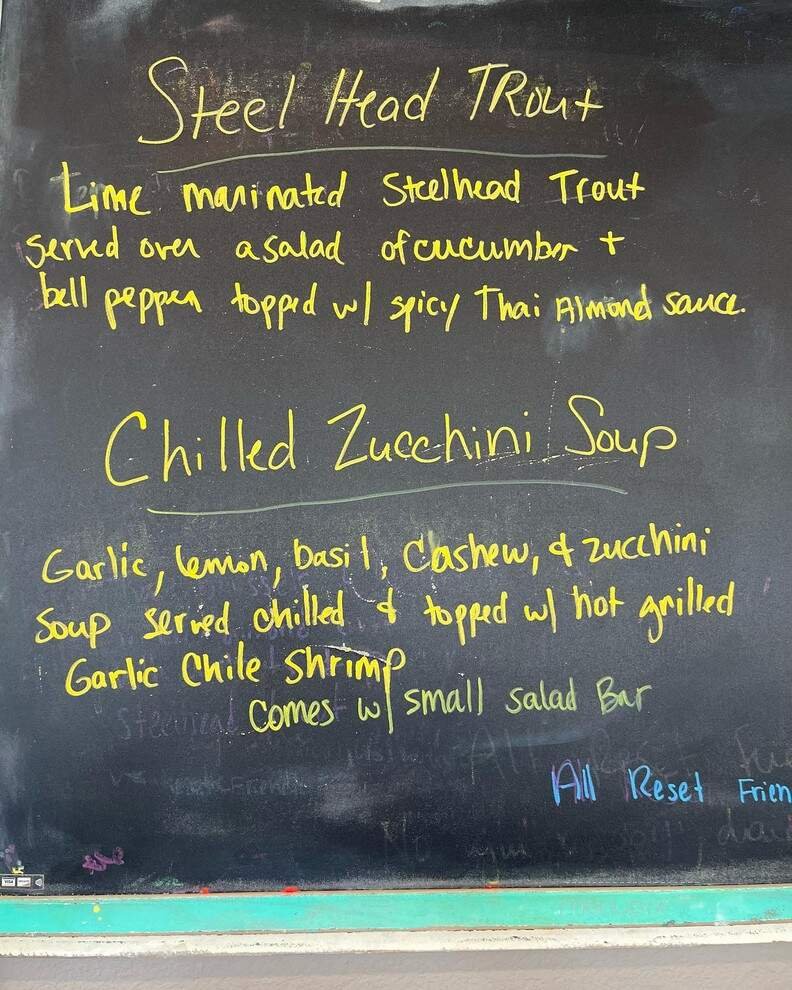 Steel Head TRout
Lime marinated Steelhead Trout
served over a salad of cucumber +
bell pepper topped w/ spicy Thai Almond sauce.
Chilled Zucchini Soup
Garlic, lemon, basil, Cashew, & zucchini
Soup served chilled & topped w/ hot grilled
Garlic Chile Shrimp
Comes w/ small salad Bar
All Reset Frien
VISA